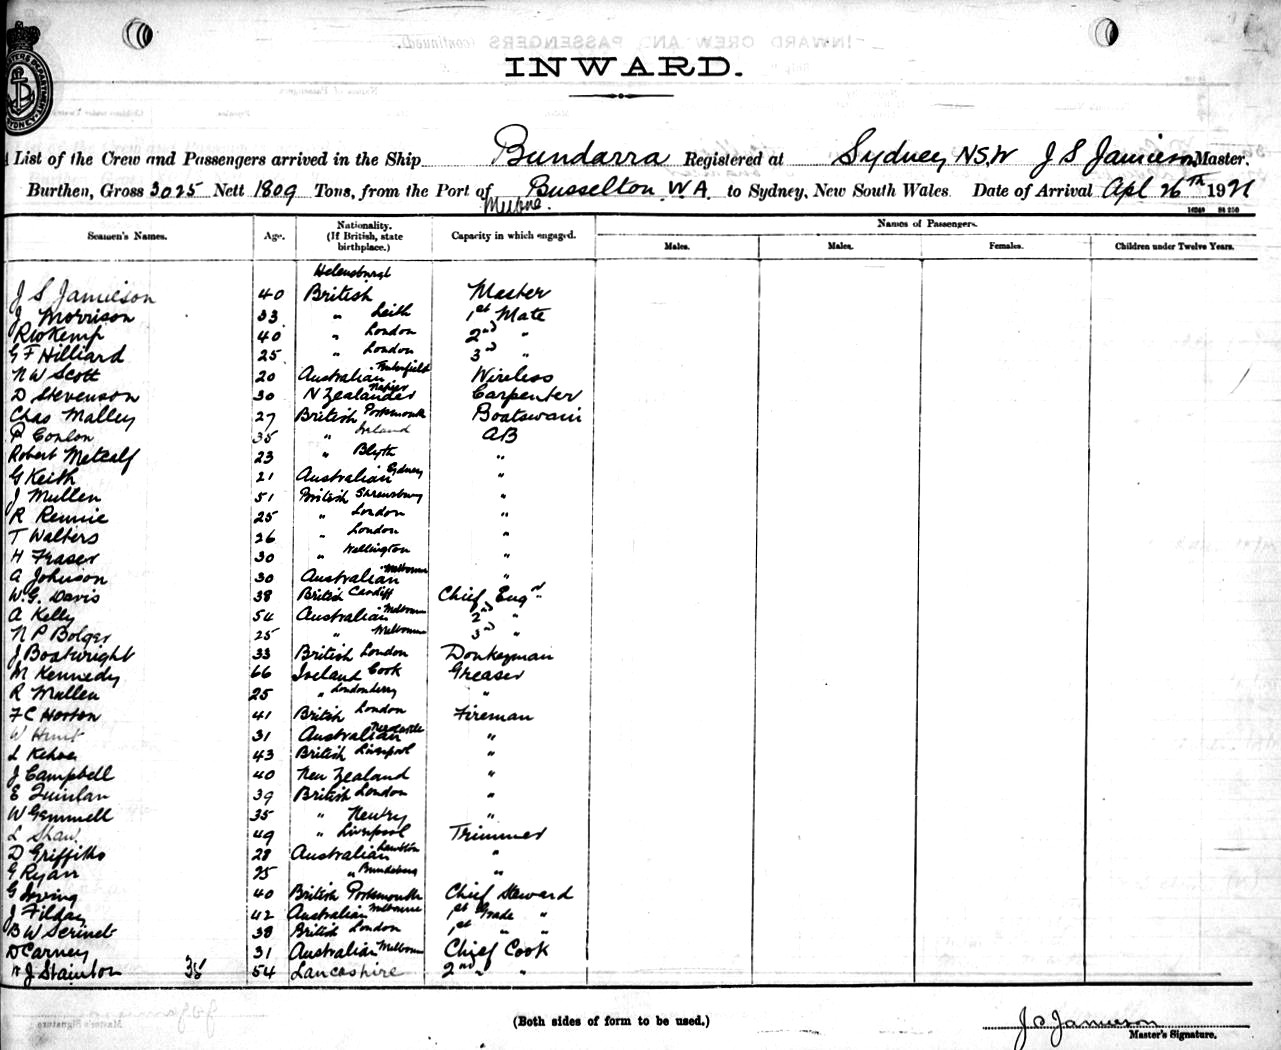 INWARD.
List of the Crew and Passengers arrived in the Ship Bundarra Registered at Sydney NSW J S Jamieson Master.
Burthen, Gross 3025 Nett 1809 Tons, from the Port of Busselton W.A. to Sydney, New South Wales. Date of Arrival Apl 26th 1921
Seamen's Names. Age. Nationality. (If British, state birthplace.) Capacity in which engaged. Names of Passengers.
Males. Males. Females. Children under Twelve Years.
Helensburgh
J S Jamieson 40 British Master
J Morrison 33 " Leith 1st Mate
R W Kemp 40 " London 2nd "
G F Hilliard 25 " London 3rd "
N W Scott 20 Australian Wireless
D Stevenson 30 N Zealander Napier Carpenter
Chas Malley 27 British Portsmouth Boatswain
P Conlon 35 " Ireland AB
Robert Metcalf 23 " Blyth "
G Keith 21 Australian Sydney "
J Mullen 51 British Shrewsbury "
R Rennie 25 " London "
T Walters 26 " London "
H Fraser 30 " Wellington "
A Johnson 30 Australian Melbourne "
W.G. Davis 38 British Cardiff Chief Engr
A Kelly 54 Australian Melbourne 2nd "
N P Bolger 25 " Melbourne 3rd "
J Boatwright 33 British London Donkeyman
M Kennedy 66 Ireland Cook Greaser
R Mullen 25 " Londonderry "
F C Horton 41 British London Fireman
W Hunt 31 Australian Newcastle "
L Kehoe 43 British Liverpool "
J Campbell 40 New Zealand "
E Quinlan 39 British London "
W Gemmell 35 " Newry "
L Shaw 49 " Liverpool Trimmer
D Griffiths 28 Australian Lambton "
G Ryan 25 " Bundaberg "
G Irving 40 British Portsmouth Chief Steward
J Filday 42 Australian Melbourne 1st Grade "
B W Scrines 38 British London 1st " "
D Carney 31 Australian Melbourne Chief Cook
J Stainton 35 54 Lancashire 2nd "
(Both sides of form to be used.)
J S Jamieson
Master's Signature.